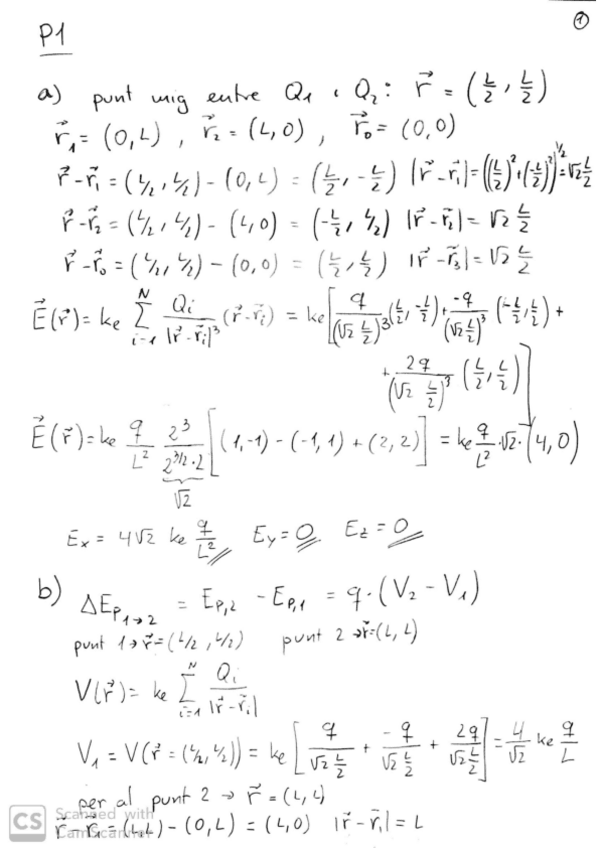 ①
P1
a) punt mig entre Q₁ i Q₂: r⃗ = (L/2, L/2)
r⃗₁ = (0,L), r⃗₂ = (L,0), r⃗₀ = (0,0)
r⃗-r⃗₁ = (L/2, L/2) - (0,L) = (L/2, -L/2) |r⃗-r⃗₁| = ((L/2)²+(-L/2)²)^1/2 = √2 L/2
r⃗-r⃗₂ = (L/2, L/2) - (L,0) = (-L/2, L/2) |r⃗-r⃗₂| = √2 L/2
r⃗-r⃗₀ = (L/2, L/2) - (0,0) = (L/2, L/2) |r⃗-r⃗₃| = √2 L/2
E⃗(r⃗) = ke Σ_{i=1}^{N} Qi/|r⃗-r⃗i|³ (r⃗-r⃗i) = ke[q/(√2 L/2)³ (L/2, -L/2) + -q/(√2 L/2)³ (-L/2, L/2) +
+ 2q/(√2 L/2)³ (L/2, L/2)]
E⃗(r⃗) = ke q/L² 2³/(2^3/2·2) [(1,-1) - (-1,1) + (2,2)] = ke q/L² · √2 · (4,0)
√2
Ex = 4√2 ke q/L² Ey = 0 Ez = 0
b) ΔEp₁→₂ = Ep,2 - Ep,1 = q·(V₂ - V₁)
punt 1 → r⃗ = (L/2, L/2) punt 2 → r⃗ = (L, L)
V(r⃗) = ke Σ_{i=1}^{N} Qi/|r⃗-r⃗i|
V₁ = V(r⃗ = (L/2, L/2)) = ke [q/(√2 L/2) + -q/(√2 L/2) + 2q/(√2 L/2)] = 4/√2 ke q/L
per al punt 2 → r⃗ = (L, L)
r⃗-r⃗₁ = (L,L) - (0,L) = (L,0) |r⃗-r⃗₁| = L
CS Scanned with
CamScanner